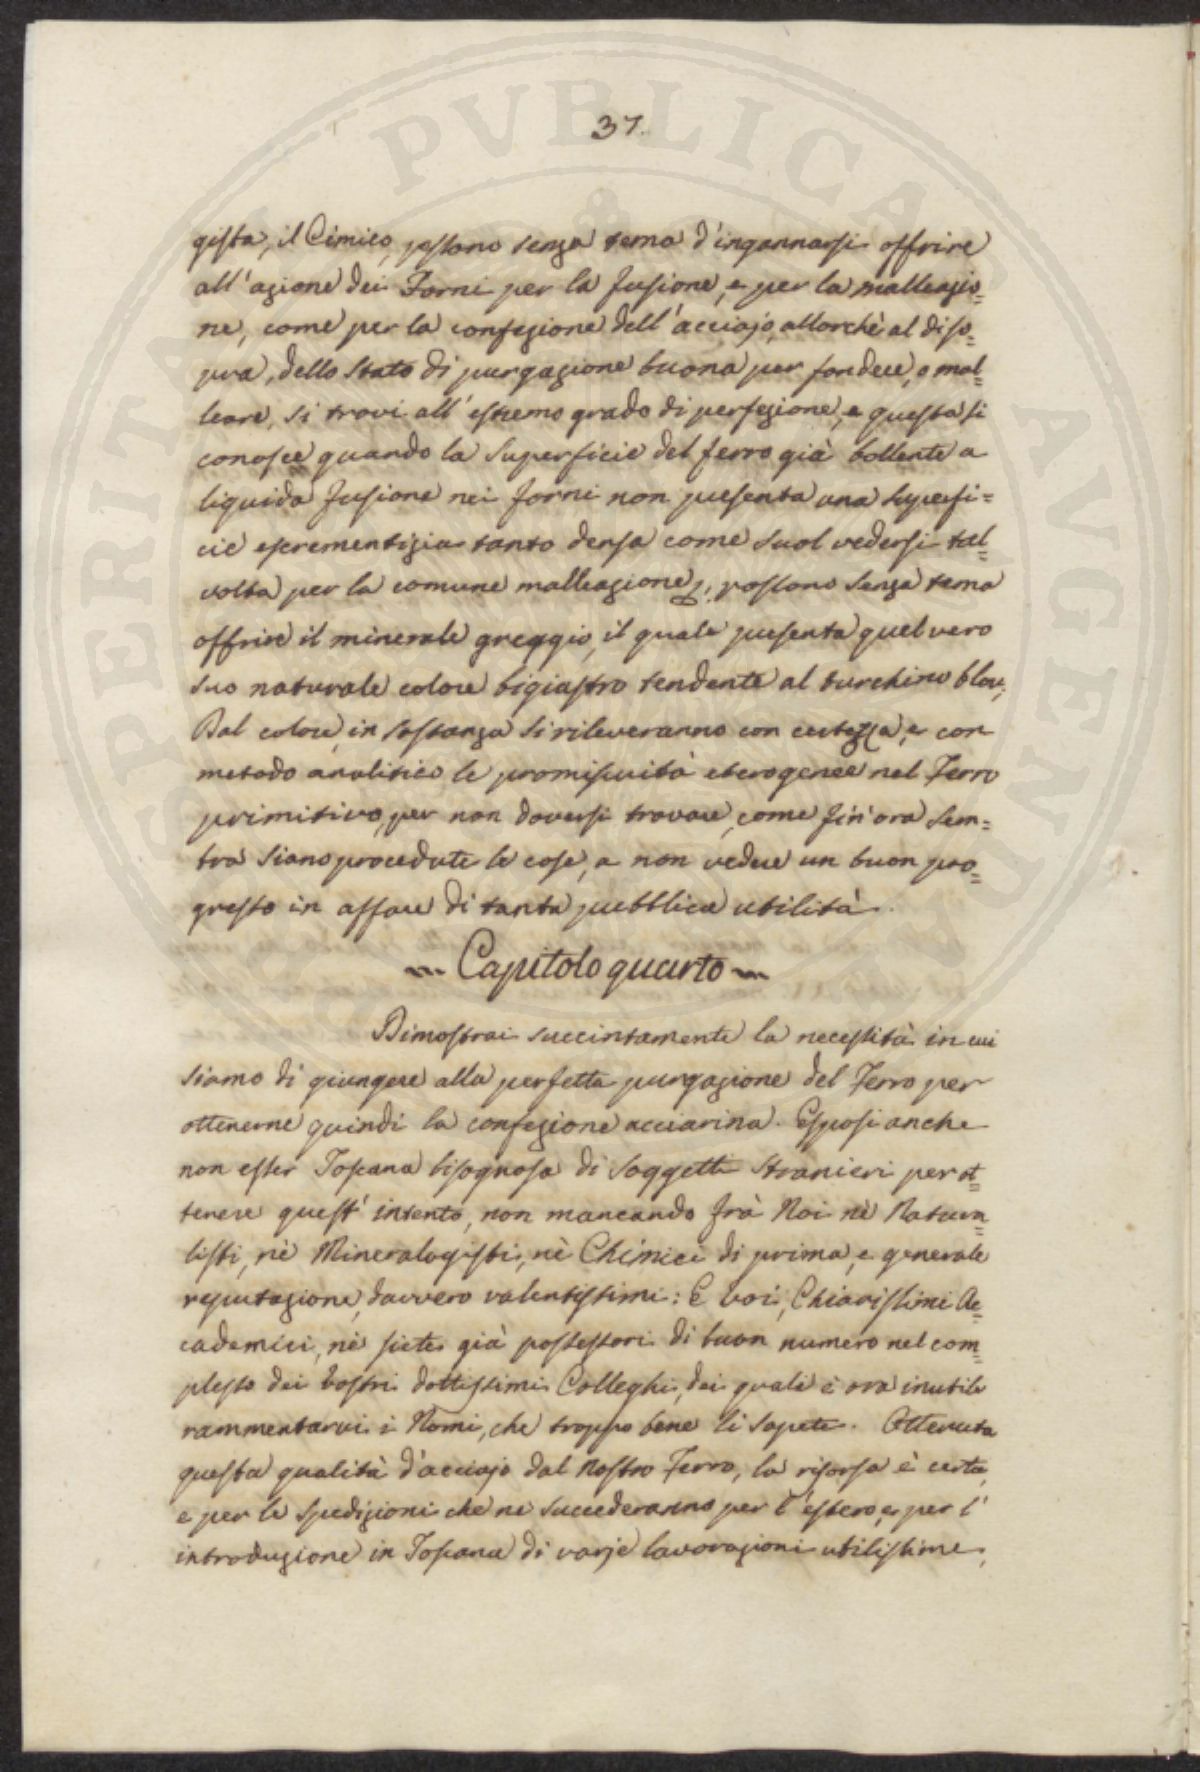 37.
gista, il Cimico, possono senza tema d'ingannarsi offrire
all'azione dei Forni per la fusione, e per la malleazio=
ne, come per la confezione dell'acciajo, allorchè al diso=
pra, dello Stato di purgazione buona per fondere, o mal=
leare, si trovi all'estremo grado di perfezione, e questa si
conosce quando la Superficie del ferro già bollente a
liquida fusione nei forni non presenta una superfi=
cie escrementizia tanto densa come suol vedersi tal=
volta per la comune malleazione, possono senza tema
offrire il minerale greggio, il quale presenta quel vero
suo naturale colore bigiastro tendente al turchino bleu;
Dal colore, in sostanza si rileveranno con certezza, e con
metodo analitico le promiscuità eterogenee nel Ferro
primitivo, per non doversi trovare, come fin'ora sem=
bra siano procedute le cose, a non vedere un buon pro=
gresso in affare di tanta pubblica utilità.
Capitolo quarto
Dimostrai succintamente la necessità in cui
siamo di giungere alla perfetta purgazione del Ferro per
ottenerne quindi la confezione acciarina. Esposi anche
non esser Toscana bisognosa di Soggetti Stranieri per ot=
tenere quest'intento, non mancando frà Noi nè Natura=
listi, nè Mineralogisti, nè Chimici di prima, e generale
reputazione, davvero valentissimi: E voi, Chiarissimi Ac=
cademici, nè siete già possessori di buon numero nel com=
plesso dei vostri dottissimi Colleghi, dei quali è ora inutile
rammentarvi i Nomi, che troppo bene li sapete. Ottenuta
questa qualità d'acciajo dal nostro Ferro, la risorsa è certa,
e per le spedizioni che ne succederanno per l'estero, e per l'
introduzione in Toscana di varje lavorazioni utilissime,
PERITAT PVBLICAE AVGENDAE